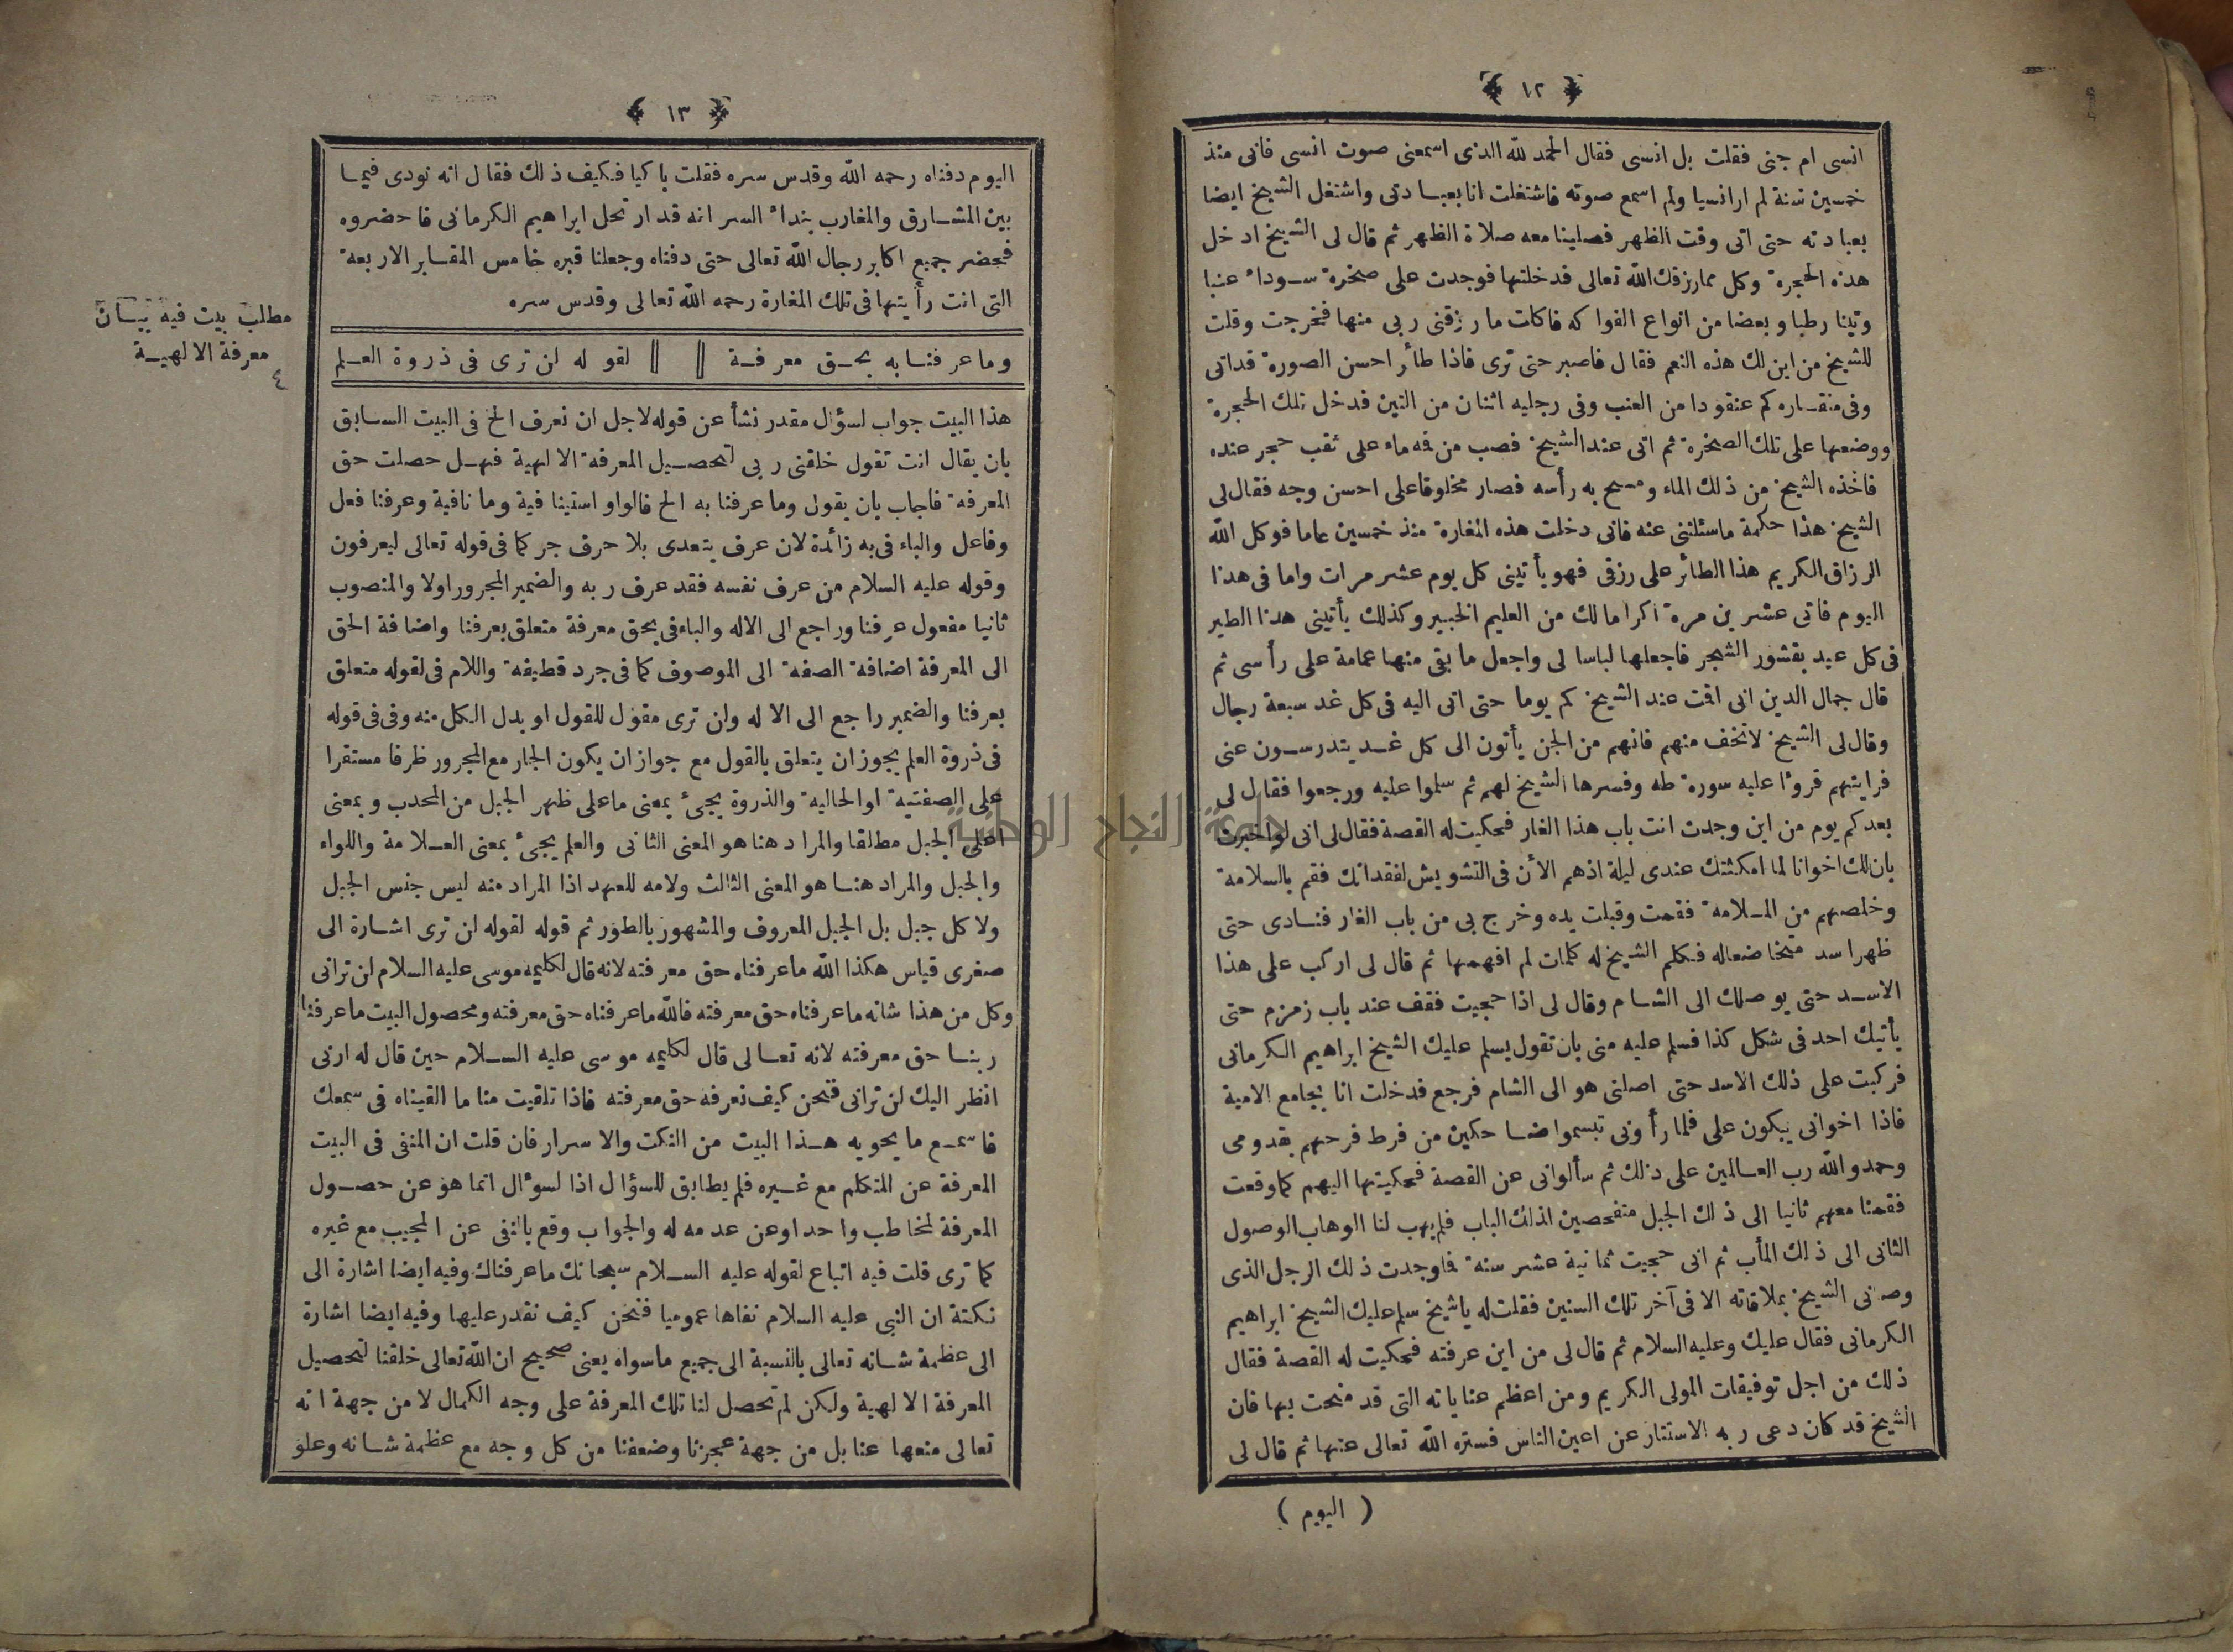 ﴿ ١٢ ﴾
انسى ام جنى فقلت بل انسى فقال الحمد لله الذى اسمعنى صوت انسى فانى منذ
خمسين سنة لم ار انسيا ولم اسمع صوته فاشتغلت انا بعبادتى واشتغل الشيخ ايضا
بعبادته حتى اتى وقت الظهر فصلينا معه صلاة الظهر ثم قال لى الشيخ ادخل
هذه الحجرة وكل مما رزقك الله تعالى فدخلتها فوجدت على صخرة سوداء عنبا
وتينا رطبا وبعضا من انواع الفواكه فاكلت ما رزقنى ربى منها فخرجت وقلت
للشيخ من اين لك هذه النعم فقال فاصبر حتى ترى فاذا طائر احسن الصورة قد اتى
وفى منقاره كم عنقودا من العنب وفى رجليه اثنان من التين فدخل تلك الحجرة
ووضعها على تلك الصخرة ثم اتى عند الشيخ فصب من فه ماء على ثقب حجر عنده
فاخذه الشيخ من ذلك الماء ومسح به رأسه فصار محلوقا على احسن وجه فقال لى
الشيخ هذا حكمة ماسئلتنى عنه فانى دخلت هذه المغارة منذ خمسين عاما فوكل الله
الرزاق الكريم هذا الطائر على رزقى فهو يأتينى كل يوم عشر مرات واما فى هذا
اليوم فاتى عشرين مرة اكراما لك من العليم الخبير وكذلك يأتينى هذا الطير
فى كل عيد بقشور الشجر فاجعلها لباسا لى واجعل ما بقى منها عمامة على رأسى ثم
قال جمال الدين انى اقمت عند الشيخ كم يوما حتى اتى اليه فى كل غد سبعة رجال
وقال لى الشيخ لاتخف منهم فانهم من الجن يأتون الى كل غد يتدرسون عنى
فرايتهم قروًا عليه سورة طه وفسرها الشيخ لهم ثم سلموا عليه ورجعوا فقال لى
بعد كم يوم من اين وجدت انت باب هذا الغار فحكيت له القصة فقال لى انى لو اخبرت
بان لك اخوانا لما امكثتك عندى ليلة اذهم الأن فى التشويش لفقدانك فقم بالسلامة
وخلصهم من الملامة فقمت وقبلت يده وخرج بى من باب الغار فنادى حتى
ظهر اسد متخاضعاله فكلم الشيخ له كلمات لم افهمها ثم قال لى اركب على هذا
الاسد حتى يوصلك الى الشام وقال لى اذا حجيت فقف عند باب زمزم حتى
يأتيك احد فى شكل كذا فسلم عليه منى بان تقول يسلم عليك الشيخ ابراهيم الكرمانى
فركبت على ذلك الاسد حتى اصلنى هو الى الشام فرجع فدخلت انا بجامع الامية
فاذا اخوانى يبكون على فلما رأونى تبسموا ضاحكين من فرط فرحهم بقدومى
وحمدو الله رب العالمين على ذلك ثم سألوانى عن القصة فحكيتها اليهم كما وقعت
فقمنا معهم ثانيا الى ذلك الجبل متفحصين لذلك الباب فلم يهب لنا الوهاب الوصول
الثانى الى ذلك المأب ثم انى حجيت ثمانية عشر سنة فاوجدت ذلك الرجل الذى
وصانى الشيخ بملاقاته الا فى آخر تلك السنين فقلت له ياشيخ سلم عليك الشيخ ابراهيم
الكرمانى فقال عليك وعليه السلام ثم قال لى من اين عرفته فحكيت له القصة فقال
ذلك من اجل توفيقات المولى الكريم ومن اعظم عناياته التى قد منحت بها فان
الشيخ قد كان دعى ربه الاستتار عن اعين الناس فستره الله تعالى عنها ثم قال لى
( اليوم )
﴿ ١٣ ﴾
اليوم دفناه رحمه الله وقدس سره فقلت باكيا فكيف ذلك فقال انه نودى فيما
بين المشارق والمغارب بنداء السر انه قد ارتحل ابراهيم الكرمانى فاحضروه
فحضر جميع اكابر رجال الله تعالى حتى دفناه وجعلنا قبره خامس المقابر الاربعة
التى انت رأيتها فى تلك المغارة رحمه الله تعالى وقدس سره
وما عرفنا به بحق معرفة || || لقوله لن ترى فى ذروة العلم
مطلب بيت فيه بيان
معرفة الالهية
٤
هذا البيت جواب لسؤال مقدر نشأ عن قوله لاجل ان نعرف الخ فى البيت السابق
بان يقال انت تقول خلقنى ربى لتحصيل المعرفة الالهية فهل حصلت حق
المعرفة فاجاب بان يقول وما عرفنا به الخ فالواو استينافية وما نافية وعرفنا فعل
وفاعل والباء فى به زائدة لان عرف يتعدى بلا حرف جر كما فى قوله تعالى ليعرفون
وقوله عليه السلام من عرف نفسه فقد عرف ربه والضمير المجرور اولا والمنصوب
ثانيا مفعول عرفنا وراجع الى الاله والباء فى بحق معرفة متعلق بعرفنا واضافة الحق
الى المعرفة اضافة الصفة الى الموصوف كما فى جرد قطيفة واللام فى لقوله متعلق
بعرفنا والضمير راجع الى الاله وان ترى مقول للقول او بدل الكل منه وفى فى قوله
فى ذروة العلم يجوز ان يتعلق بالقول مع جواز ان يكون الجار مع المجرور ظرفا مستقرا
على الصفتية او الحالية والذروة يجىء بمعنى ماعلى ظهر الجبل من المحدب وبمعنى
اعلى الجبل مطلقا والمراد هنا هو المعنى الثانى والعلم يجىء بمعنى العلامة واللواء
والجبل والمراد هنا هو المعنى الثالث ولامه للعهد اذا المراد منه ليس جنس الجبل
ولا كل جبل بل الجبل المعروف والمشهور بالطور ثم قوله لقوله لن ترى اشارة الى
صغرى قياس هكذا الله ماعرفناه حق معرفته لانه قال لكليمه موسى عليه السلام لن ترانى
وكل من هذا شانه ماعرفناه حق معرفته فالله ماعرفناه حق معرفته ومحصول البيت ماعرفنا
ربنا حق معرفته لانه تعالى قال لكليمه موسى عليه السلام حين قال له ارنى
انظر اليك لن ترانى فنحن كيف نعرفه حق معرفته فاذا تلقيت منا ما القيناه فى سمعك
فاسمع مايحويه هذا البيت من النكت والاسرار فان قلت ان المنفى فى البيت
المعرفة عن المتكلم مع غيره فلم يطابق للسؤال اذا لسؤال انما هو عن حصول
المعرفة لمخاطب واحد اوعن عدمه له والجواب وقع بالنفى عن المجيب مع غيره
كما ترى قلت فيه اتباع لقوله عليه السلام سبحانك ماعرفناك وفيه ايضا اشارة الى
نكتة ان النبى عليه السلام نفاها عموميا فنحن كيف نقدر عليها وفيه ايضا اشارة
الى عظمة شانه تعالى بالنسبة الى جميع ماسواه يعنى صحيح ان الله تعالى خلقنا لتحصيل
المعرفة الالهية ولكن لم تحصل لنا تلك المعرفة على وجه الكمال لا من جهة انه
تعالى منعها عنا بل من جهة عجزنا وضعفنا من كل وجه مع عظمة شانه وعلو
جامعة النجاح الوطنية